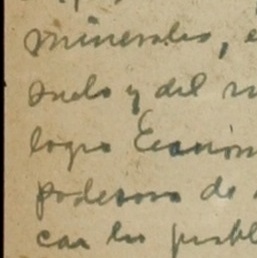 minerales, e
suelo y del
logia Económ
poderoso de
car los probl